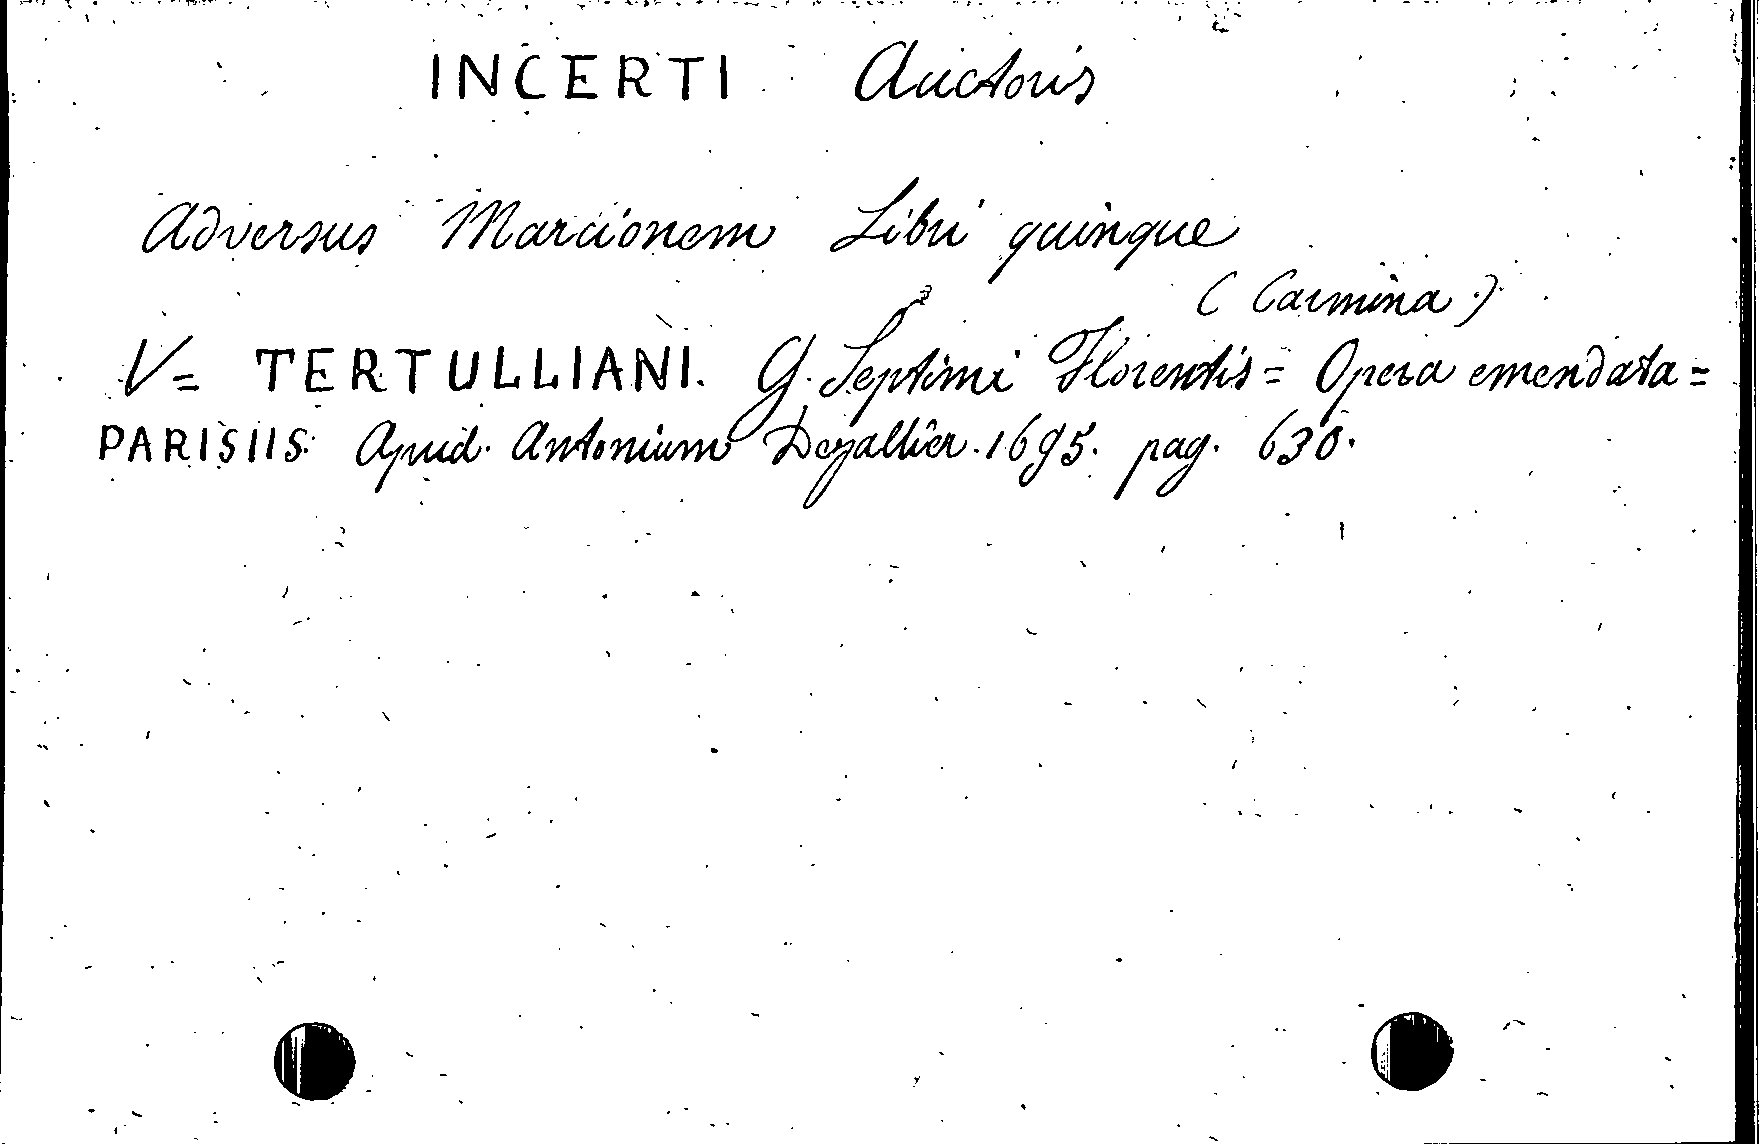 INCERTI Auctoris
Adversus Marcionem Libri quinque
(Carmina)
V= TERTULLIANI. G. Septimi Florentis = Opera emendata =
PARISIIS. Apud. Antonium Dezallier. 1695. pag. 630.